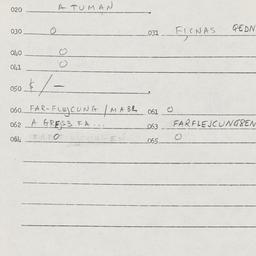 020 A TUMAN
030 O 031 FICNAS GEDN
040 O
041 O
050 $/—
060 FAR-FLEJCUNG / MABL 061 O
062 A GREJS FA... 063 FARFLEJCUNGSEN
064 O 065 O